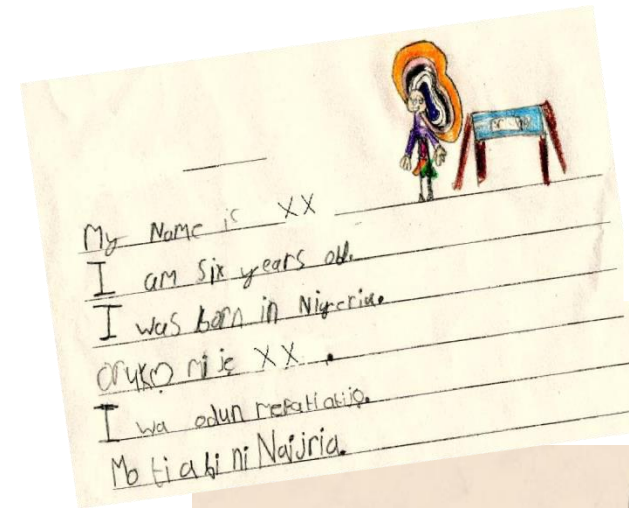 My Name is XX
I am six years old.
I was born in Nigeria.
orukọ mi jẹ XX.
I wa odun
Mo ti a bi ni Naijria.